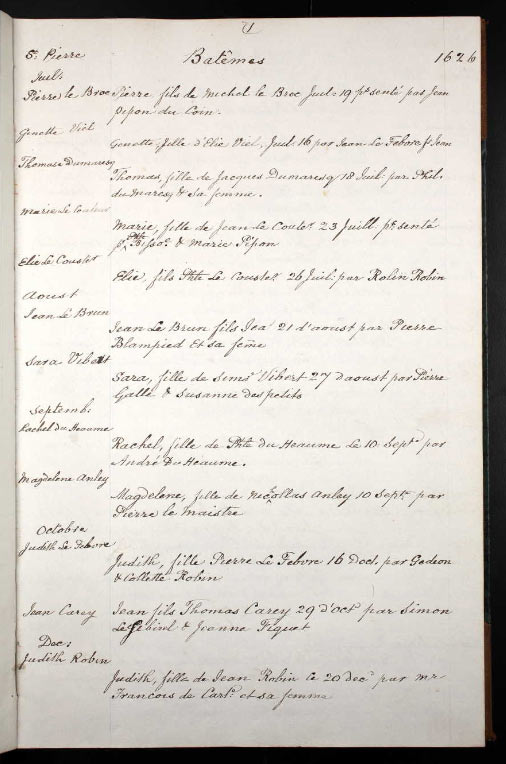 St Pierre Batêmes 1626
Juil:
Pierre le Broc Pierre fils de Michel le Broc Juil: 19 pñsenté par Jean
Pipon du Coin.
Genette Viel
Genette, fille d'Elie Viel, Juil 16 par Jean Le Febvre fs Jean
Thomase Dumaresq
Thomas, fille de Jacques Dumaresq 18 Juil: par Phil.
du Maresq & sa femme.
Marie Le Couteur
Marie, fille de Jean Le Coutr 23 Juill pñsenté
Bisson & Marie Pipon
Elie Le Coustr
Elie, fils Phte Le Coustr 26 Juil: par Rolin Robin
Aoust
Jean Le Brun
Jean Le Brun fils Jea 21 d'aoust par Pierre
Blampied et sa feme
Sara Vibert
Sara, fille de Simn Vibert 27 d'aoust par Pierre
Gallé & Susanne des petits
Septemb:
Rachel du Heaume
Rachel, fille de Phte du Heaume Le 10 Septr par
André Du Heaume.
Magdelene Anley
Magdelene, fille de Nicollas Anley 10 Septr par
Pierre le Maistre
Octobre
Judith Le Febvre
Judith, fille Pierre Le Febvre 16 d'oct. par Gedeon
& Collette Robin
Jean Carey Jean fils Thomas Carey 29 d'oct par Simon
Le & Jeanne Fiquet
Dec:
Judith Robin
Judith, fille de Jean Robin le 20 dec par mr
Francois de Cart. et sa femme